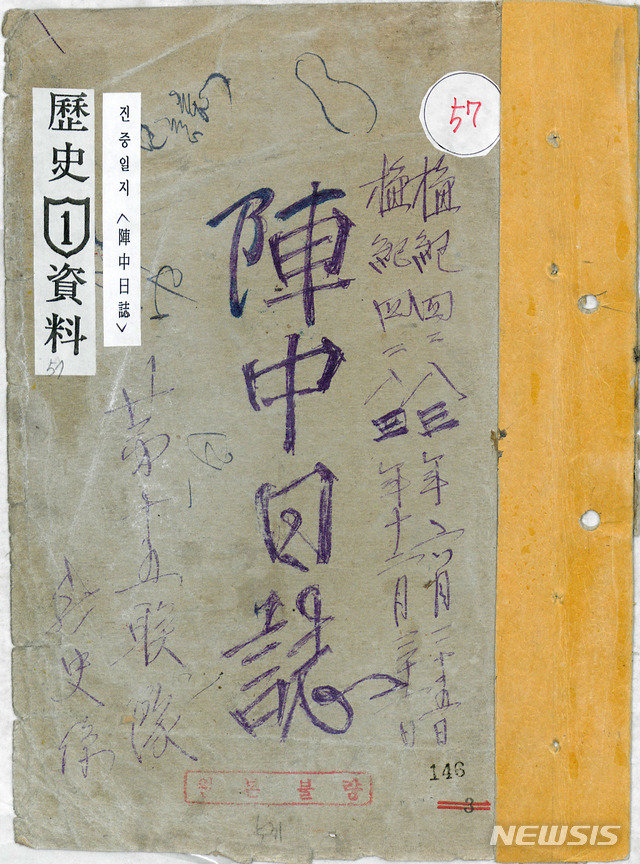 57
歷史1資料
57
진중일지 <陣中日誌>
檀紀四二八三年六月二十五日
檀紀四二八三年十二月三十日
陣中日誌
第十五联隊
歷史係
원본불량
146
3
NEWSIS